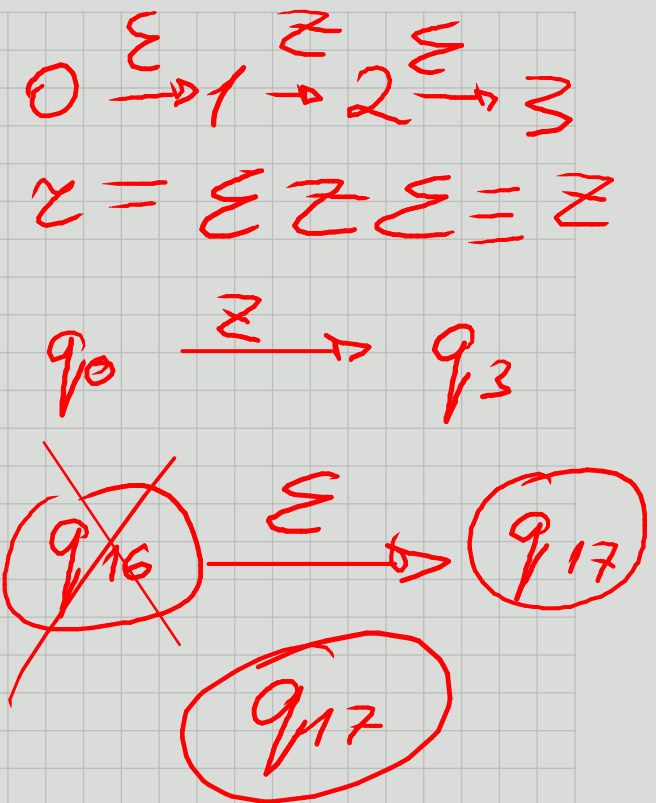 0 →ε 1 →z 2 →ε 3
z = ε z ε ≡ z
q₀ →z q₃
q₁₆ →ε q₁₇
q₁₇